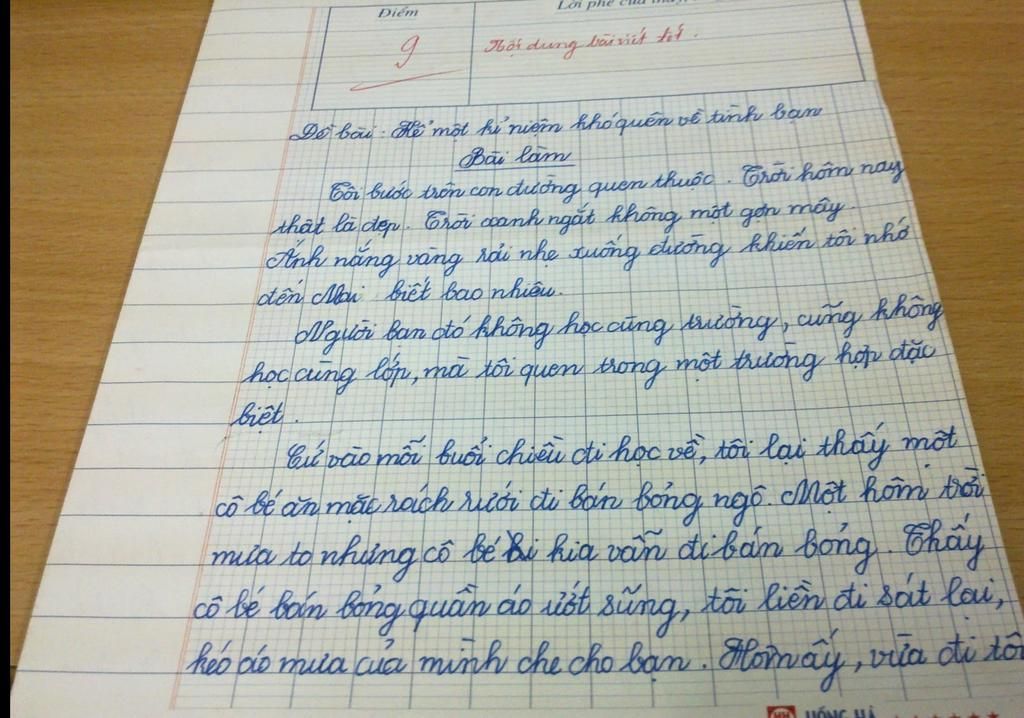 Điểm
Lời phê của
9
Nội dung bài viết tốt.
Đề bài: Kể một kỉ niệm khó quên về tình bạn
Bài làm
Tôi bước trên con đường quen thuộc. Trời hôm nay
thật là đẹp. Trời xanh ngắt không một gợn mây.
Ánh nắng vàng rải nhẹ xuống đường khiến tôi nhớ
đến Mai biết bao nhiêu.
Người bạn đó không học cùng trường, cũng không
học cùng lớp, mà tôi quen trong một trường hợp đặc
biệt.
Cứ vào mỗi buổi chiều đi học về, tôi lại thấy một
cô bé ăn mặc rách rưới đi bán bỏng ngô. Một hôm trời
mưa to nhưng cô bé kia vẫn đi bán bỏng. Thấy
cô bé bán bỏng quần áo ướt sũng, tôi liền đi sát lại,
kéo áo mưa của mình che cho bạn. Hôm ấy, vừa đi tôi
HỒNG HÀ